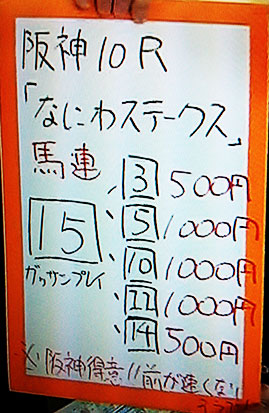 阪神10R
「なにわステークス」
馬連
15
ガッサンプレイ
3 500円
5 1000円
10 1000円
11 1000円
14 500円
※阪神得意!!前が速くなし